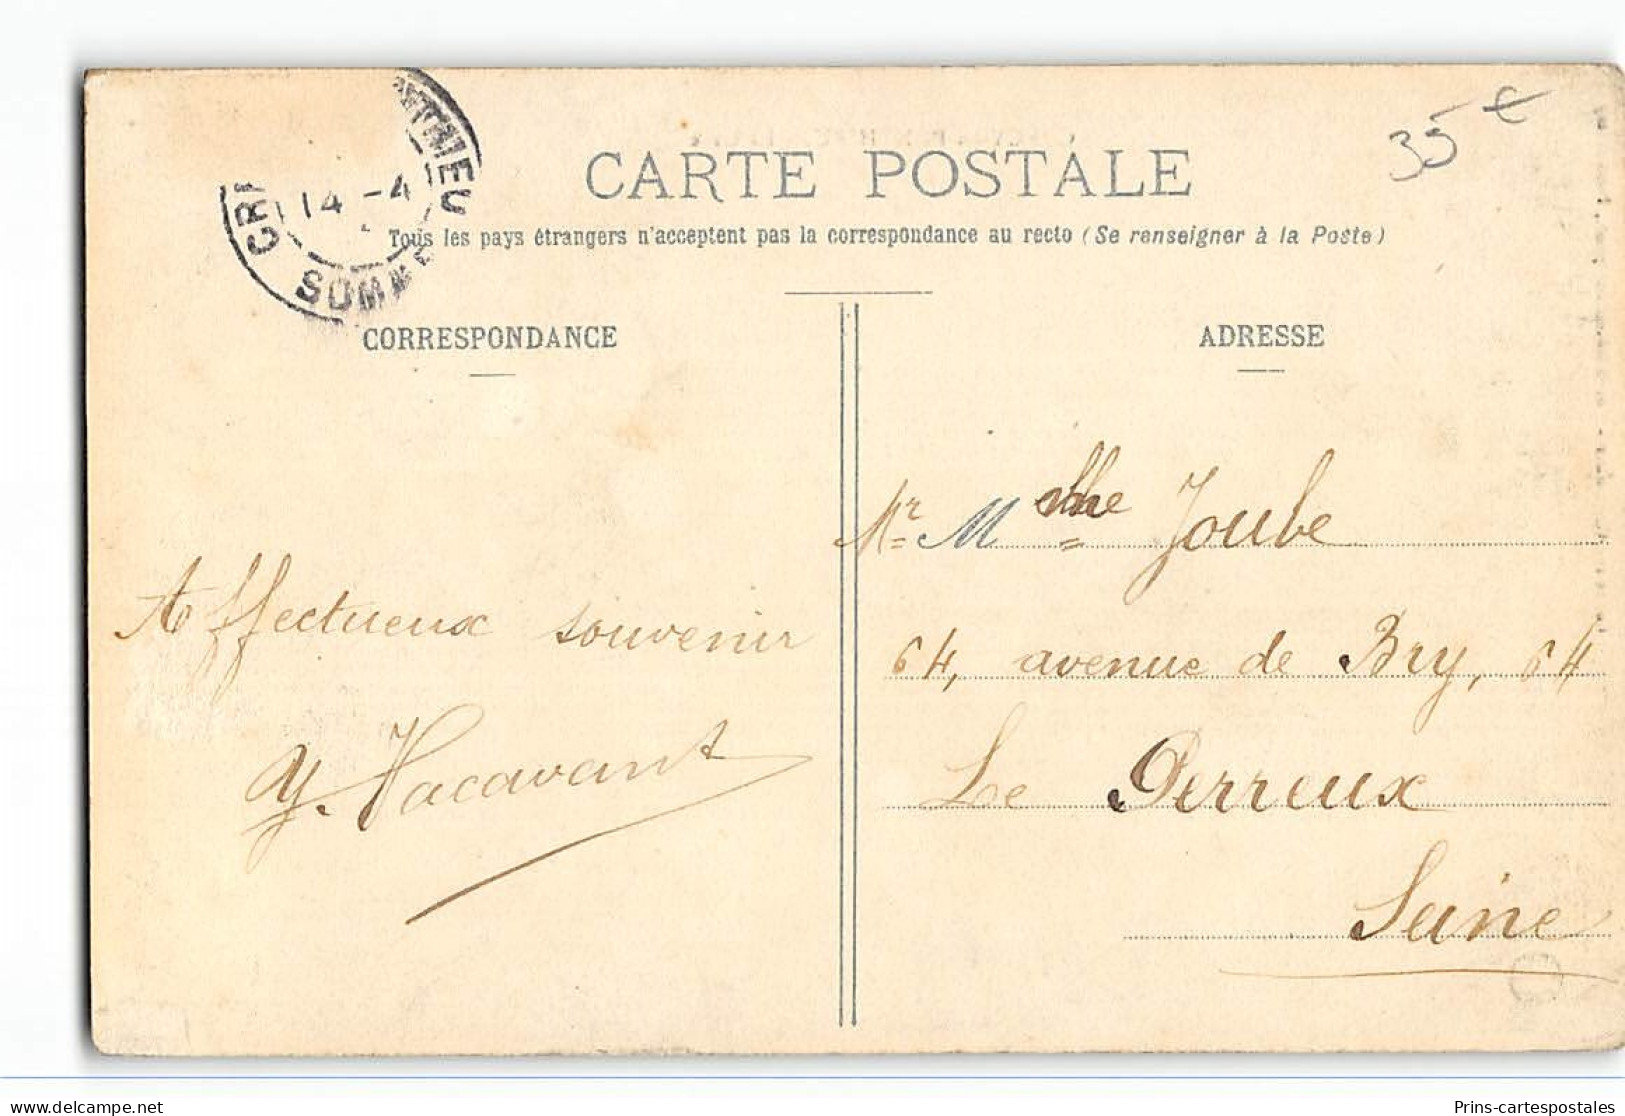 35 €
CARTE POSTALE
14 -4
SOMME
Tous les pays étrangers n'acceptent pas la correspondance au recto (Se renseigner à la Poste)
CORRESPONDANCE
ADRESSE
Mr Melle Joube
Affectueux souvenir
64, avenue de Bry, 64
Y. Vacavant
Le Perreux
Seine
delcampe.net
Prins-cartespostales